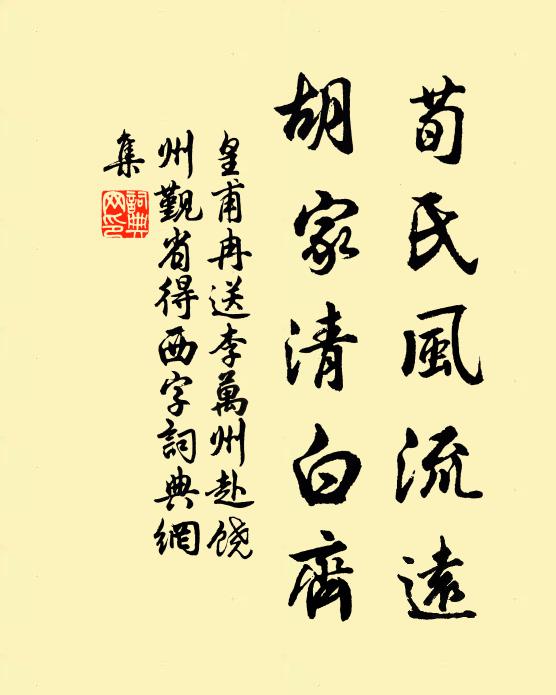 荀氏風流遠
胡家清白齊
皇甫冉送李萬州赴饶
州觐省得西字詞典網
集
詞典
网印